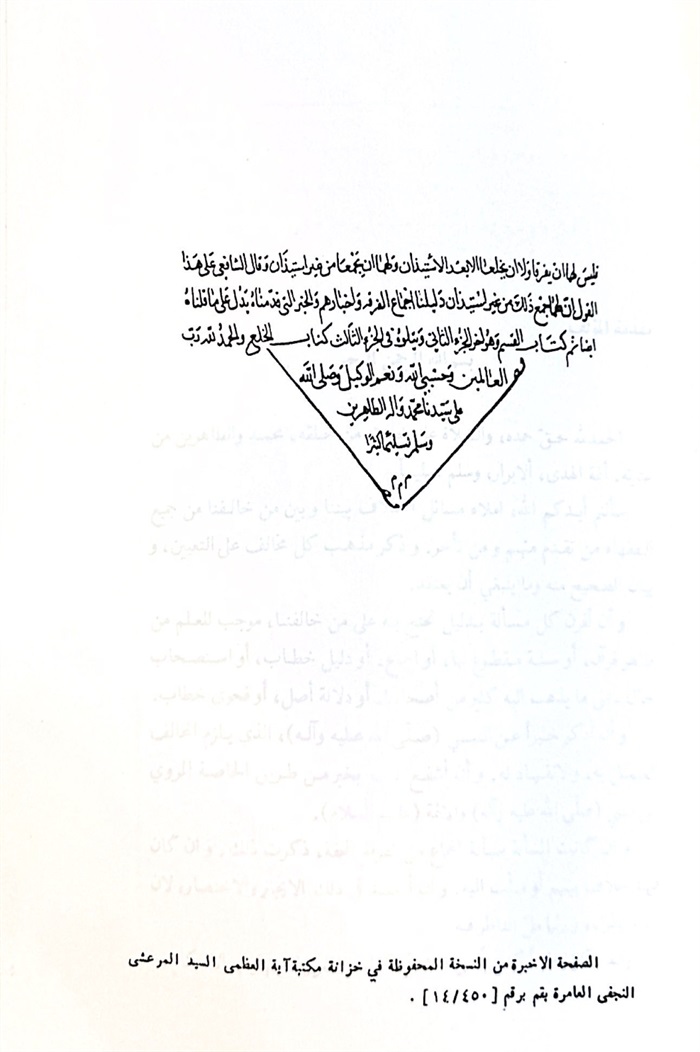 فليس لهما ان يفرقا ولا ان يخلعا الا بعد الاستيذان ولهما ان يجمعا من غير استيذان وقال الشافعي على هذا
القول ان لهما الجمع ذلك من غير استيذان دليلنا اجماع الفرقه واخبارهم والخبر التي قدمناه يدل على ما قلناه
ايضا تم كتاب القسم وهو اخر الجزء الثاني ويتلوه في الجزء الثالث كتاب الخلع والحمد لله رب
العالمين وحسبي الله ونعم الوكيل وصلى الله
على سيدنا محمد واله الطاهرين
وسلم تسليما كثيرا
م م م
الصفحة الاخيرة من النسخة المحفوظة في خزانة مكتبة آية العظمى السيد المرعشي
النجفي العامرة بقم برقم [١٤/٤٥٠] .